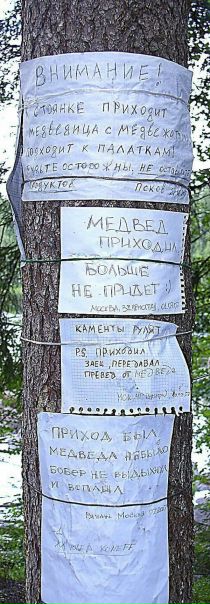 ВНИМАНИЕ!
СТОЯНКЕ ПРИХОДИТ
МЕДВЕДИЦА С МЕДВЕЖОТ
ПОДХОДИТ К ПАЛАТКАМ!
БУДЬТЕ ОСТОРОЖНЫ, НЕ
ПРОДУКТОВ
МЕДВЕД
ПРИХОДИЛ
БОЛЬШЕ
НЕ ПРИДЕТ :)
МОСКВА, ЗЕЛЕНОГРАД,
КАМЕНТЫ РУЛЯТ
PS ПРИХОДИЛ
ЗАЕЦ, ПЕРЕДАВАЛ
ПРЕВЕД ОТ МЕДВЕДА
ПРИХОД БЫЛ,
МЕДВЕДА НЕ БЫЛО
БОБЕР НЕ ВЫДЫХАЛ
И ВСПЛЫЛ
Москва